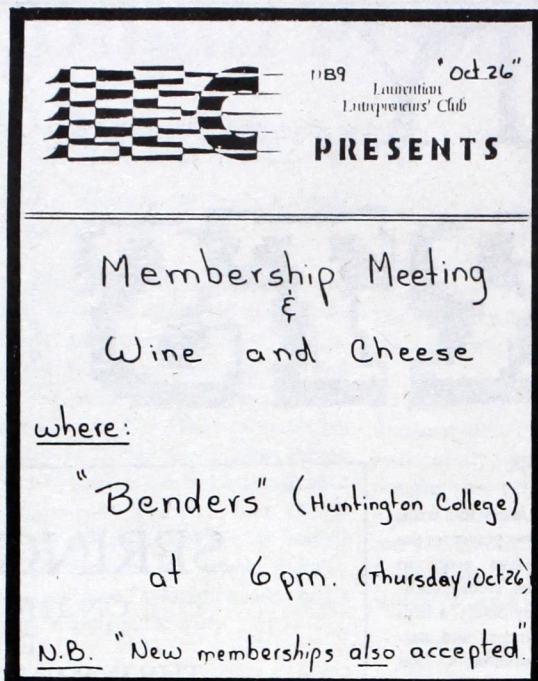 "Oct 26"
Laurentian
Entrepreneurs' Club
PRESENTS
Membership Meeting
&
Wine and Cheese
where:
"Benders" (Huntington College)
at 6pm. (Thursday, Oct 26)
N.B. "New memberships also accepted"